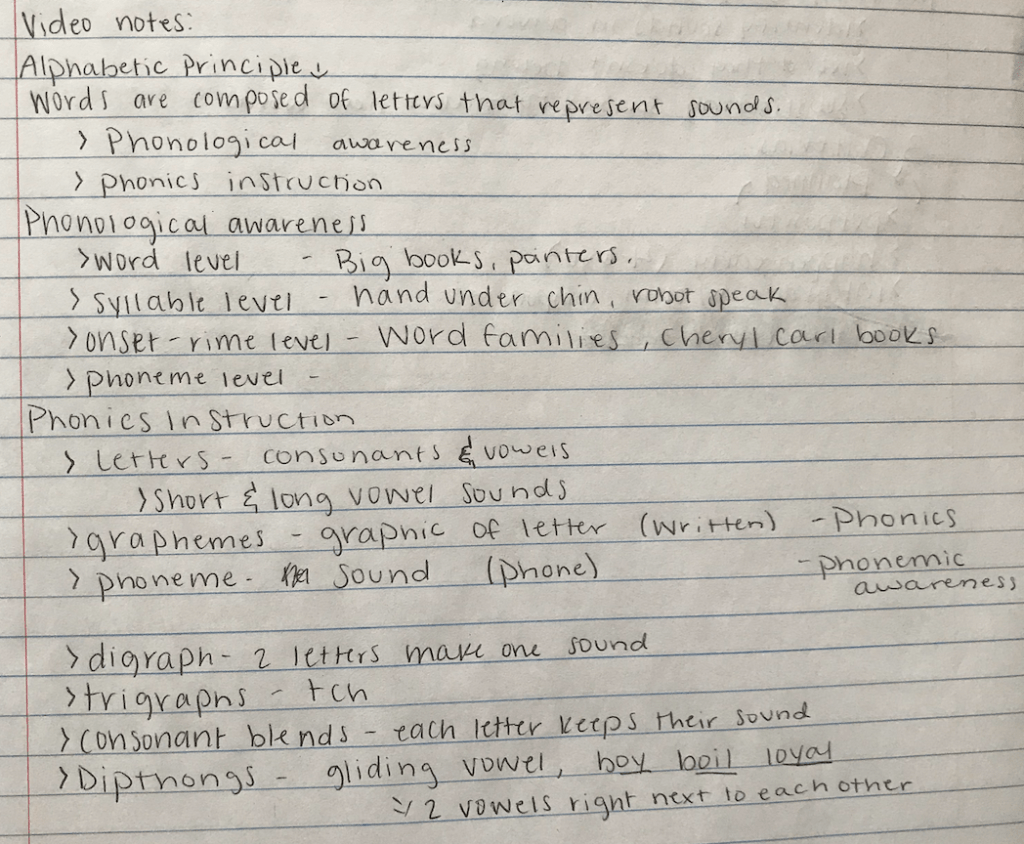 Video notes:
Alphabetic Principle ↓
Words are composed of letters that represent sounds.
> Phonological awareness
> phonics instruction
Phonological awareness
> word level - Big books, pointers.
> syllable level - hand under chin, robot speak
> onset-rime level - word families, Cheryl Carl books
> phoneme level -
Phonics Instruction
> Letters - consonants & vowels
> short & long vowel sounds
> graphemes - graphic of letter (written) - Phonics
> phoneme - sound (phone) - phonemic
awareness
> digraph - 2 letters make one sound
> trigraphs - tch
> consonant blends - each letter keeps their sound
> Dipthongs - gliding vowel, boy boil loyal
2 vowels right next to each other